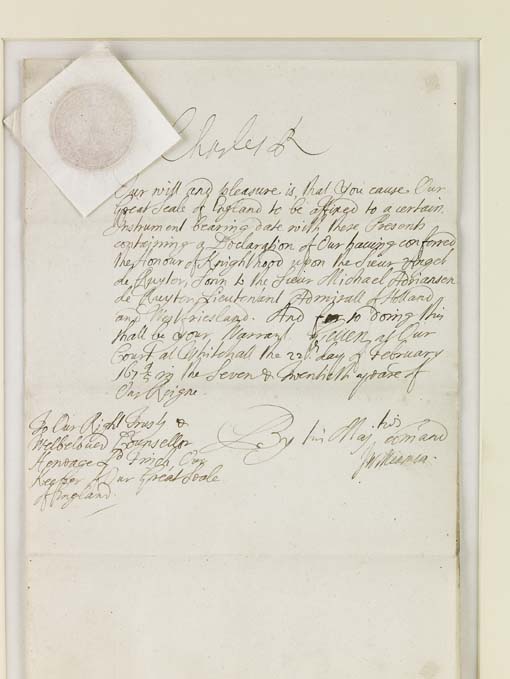 Charles R
Our will and pleasure is, that you cause Our
Great Seale of England to be affixed to a certain
Instrument bearing date with these Presents
containing a Declaration of Our having conferred
the Honour of Knighthood upon the Sieur Angel
de Ruyter, Sonn to the Sieur Michael Adriansen
de Ruyter, Lieutenant Admirall of Holland
and Westfriesland. And for so doing this
shall be your Warrant. Given at Our
Court at Whitehall the 22th day of February
167 4/5 in the Seven & Twentieth yeare of
Our Reigne.
To Our Right Trusty &
Welbeloved Counsellor
Heneage Ld Finch, Our
Keeper of Our Great Seale
of England.
By his Maj.ties Com̃and
J Williamson.